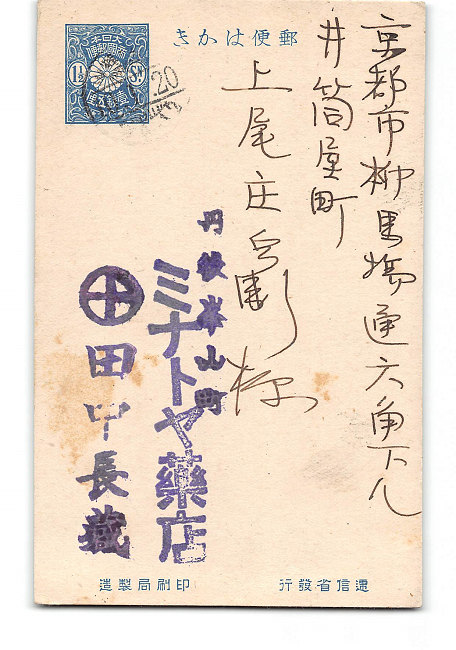 郵便はかき
大日本
帝國郵便
1½ Sⁿ
壹錢五厘
20
京都市柳馬場通六角下ル
井筒屋町
上尾庄兵衛様
丹後峯山町
ミナトヤ藥店
田中長藏
遞信省發行
印刷局製造